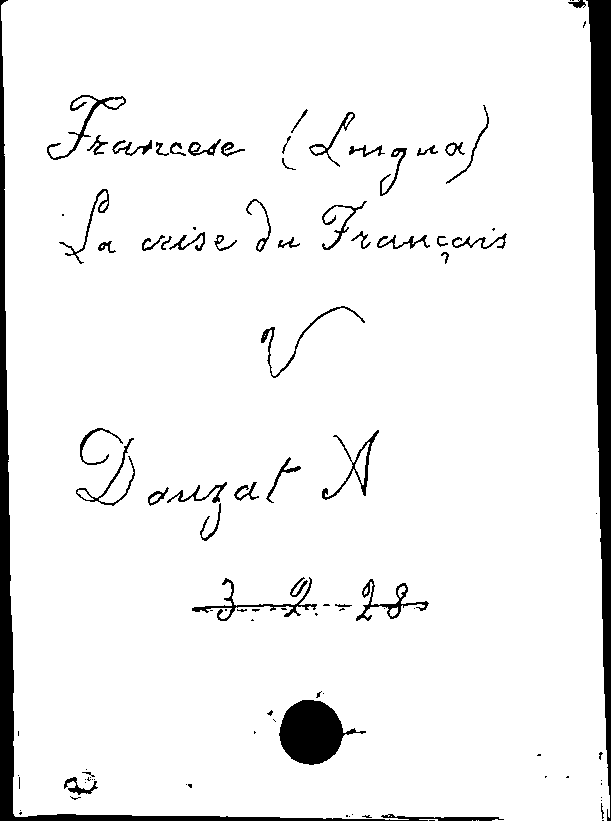 Francese (Lingua)
La crise du Français
V
Dauzat A
3 2 28